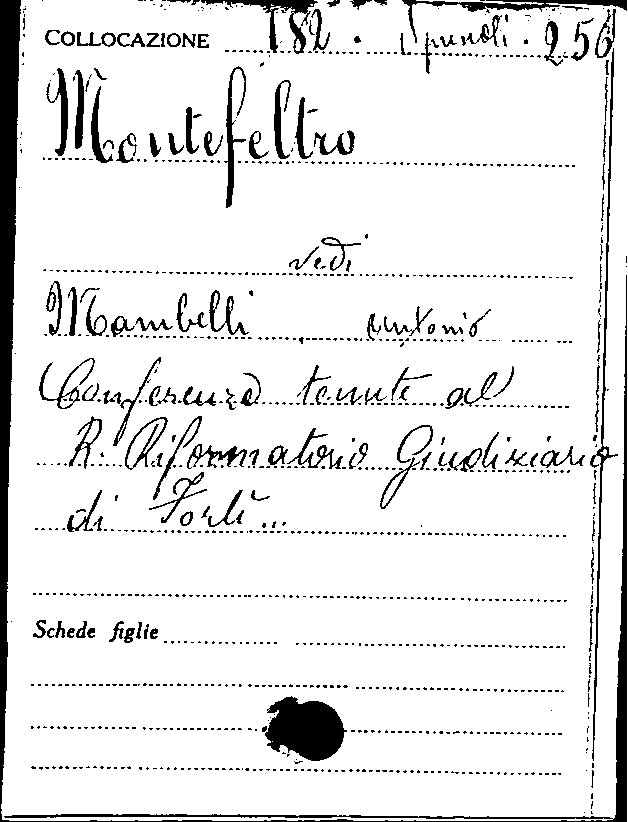 COLLOCAZIONE 182. Spinoli. 256
Montefeltro
vedi
Mambelli, Antonio
Conferenze tenute al
R. Riformatorio Giudiziario
di Forlì...
Schede figlie